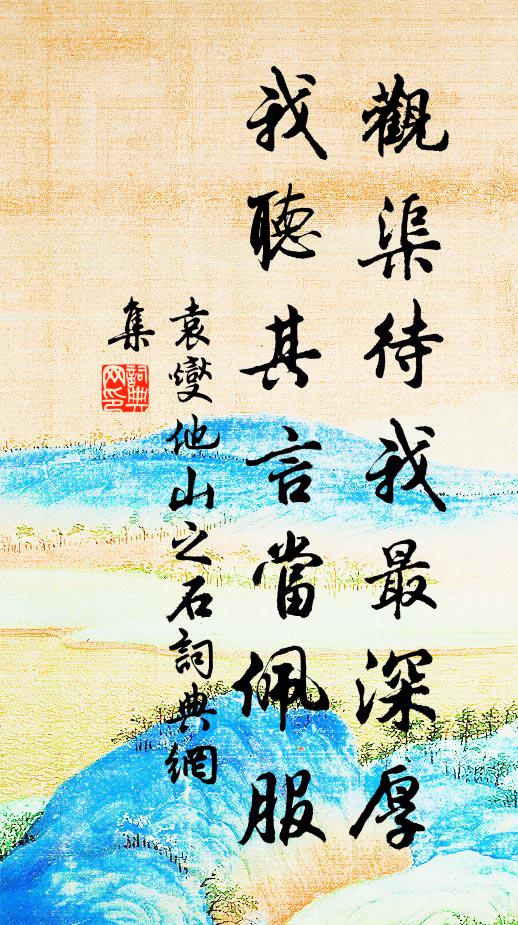 觀渠待我最深厚
我聽其言當佩服
袁燮他山之石詞典網
集
詞典
网印